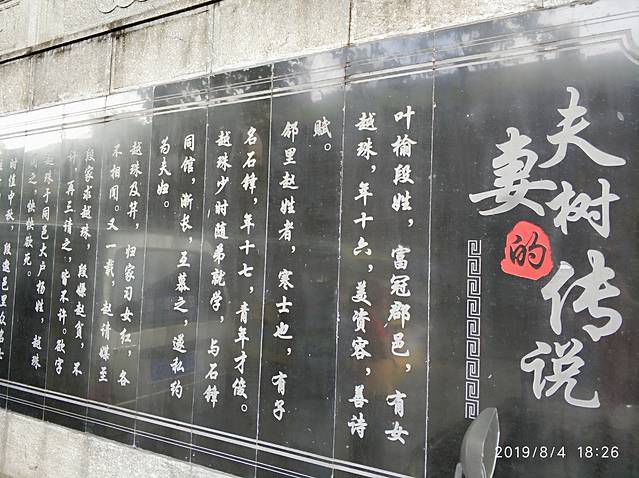 夫妻树的传说
叶榆段姓，富冠郡邑，有女
越珠，年十六，美资容，善诗
赋。
邻里赵姓者，寒士也，有子
名石锋，年十七，青年才俊。
越珠少时随弟就学，与石锋
同馆，渐长，互慕之，遂私约
为夫妇。
越珠及笄，归家习女红，各
不相闻。又一载，赵请媒至
段家求越珠，段嫌赵贫，不
许，再三请之，皆不许。欲字
越珠于同邑大户杨姓，越珠
闻之，怏怏欲死。
时值中秋，段邀邑里众
2019/8/4 18:26